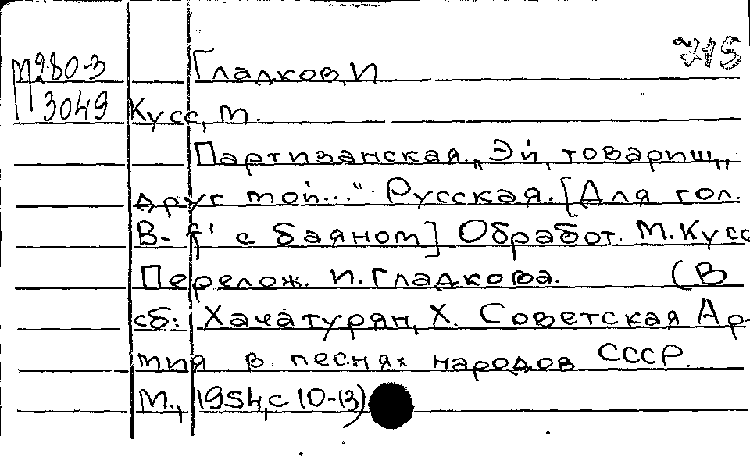 М280-3 Гладков, И 715
3049 Кусс, М.
Партизанская. „Эй, товарищ,
друг мой..." Русская. [Для гол.
В-f' с баяном] Обработ. М. Кусс
Перелож. И. Гладкова. (В
сб: Хачатурян, Х. Советская Ар-
мия в песнях народов СССР.
М., 1954, с 10-13)